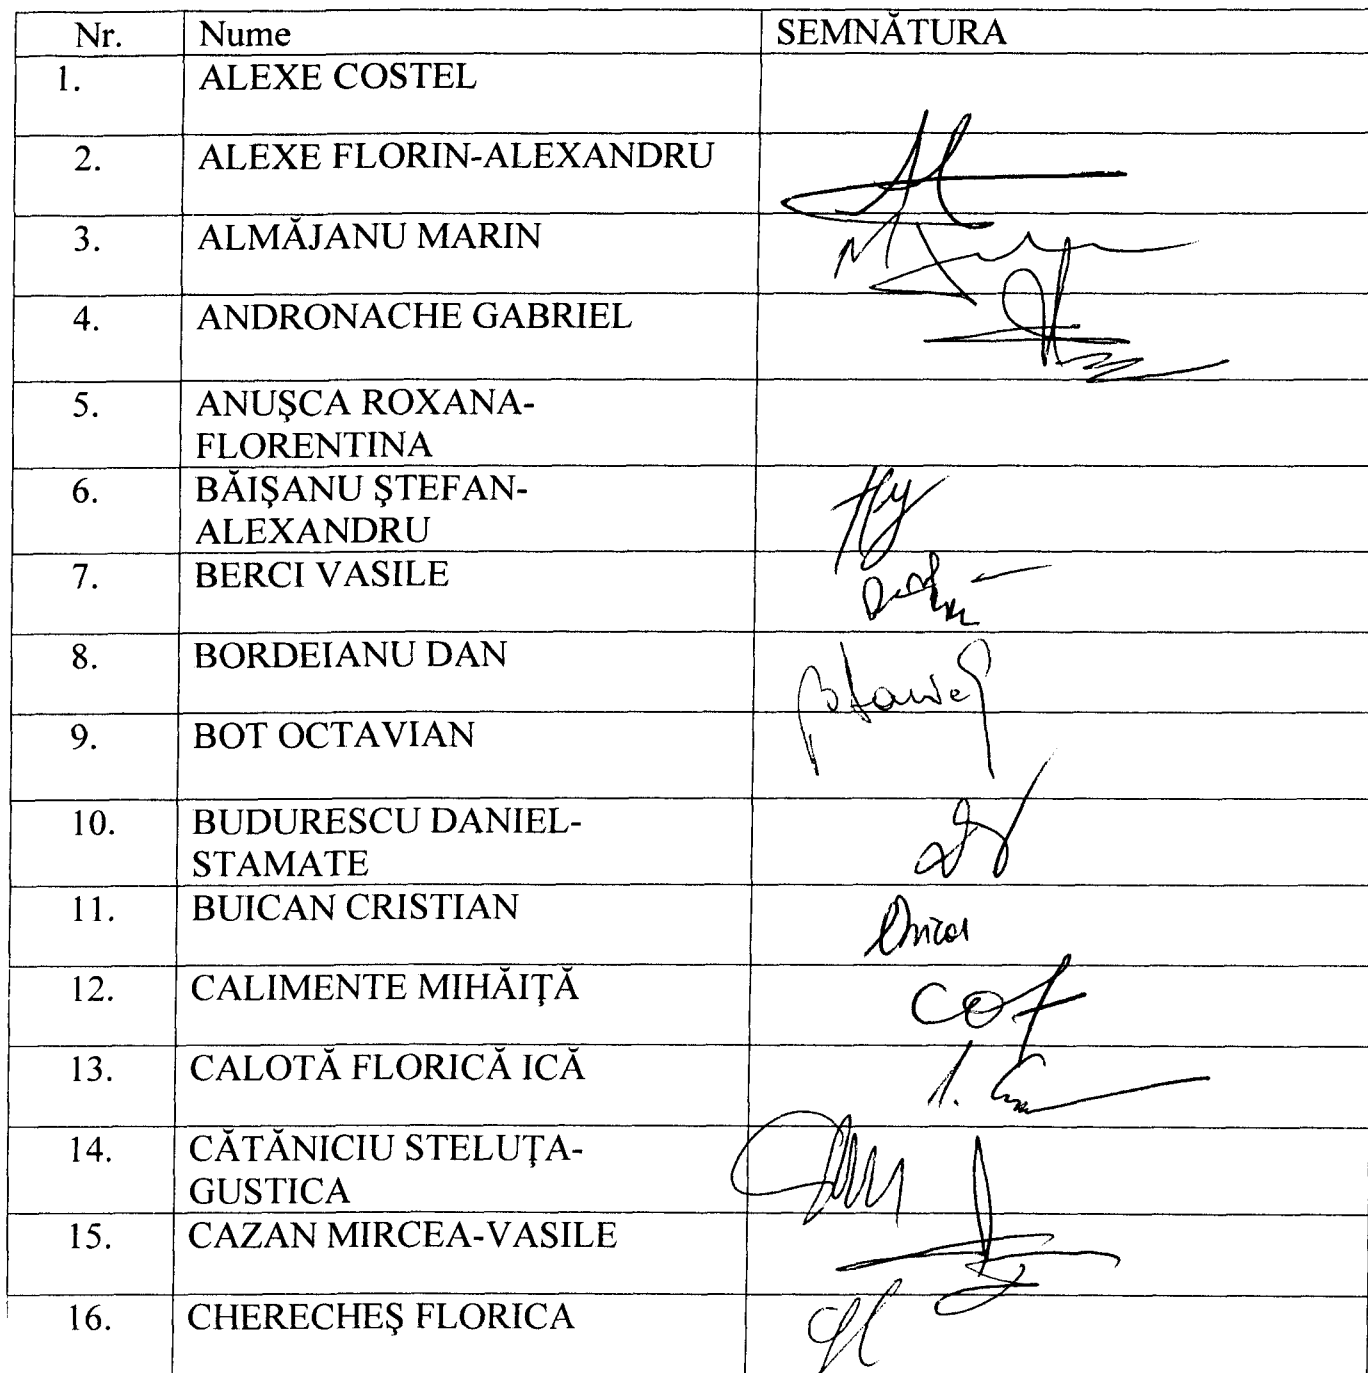 Nr. Nume SEMNĂTURA
1. ALEXE COSTEL
2. ALEXE FLORIN-ALEXANDRU
3. ALMĂJANU MARIN
4. ANDRONACHE GABRIEL
5. ANUŞCA ROXANA-
FLORENTINA
6. BĂIŞANU ŞTEFAN-
ALEXANDRU
7. BERCI VASILE
8. BORDEIANU DAN
9. BOT OCTAVIAN
10. BUDURESCU DANIEL-
STAMATE
11. BUICAN CRISTIAN
12. CALIMENTE MIHĂIŢĂ
13. CALOTĂ FLORICĂ ICĂ
14. CĂTĂNICIU STELUŢA-
GUSTICA
15. CAZAN MIRCEA-VASILE
16. CHERECHEŞ FLORICA